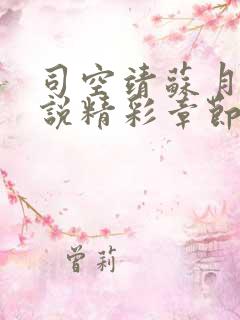 司空靖蘇月
說精彩章節
曾莉